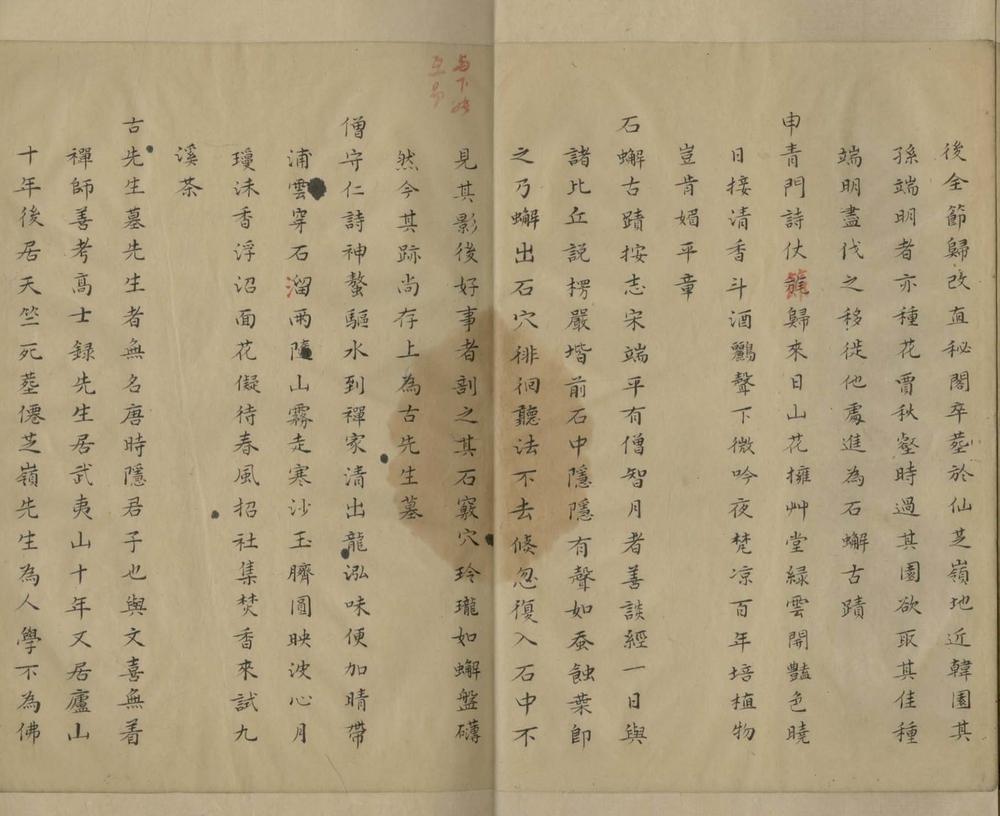 後全節歸改直秘閣卒塟於仙芝嶺地近韓園其
孫端明者亦種花賈秋壑時過其園欲取其佳種
端明盡伐之移徙他處進為石蠏古蹟
申青門詩仗籬歸來日山花擁艸堂緑雲開豔色曉
日接清香斗酒鸝聲下微吟夜梵凉百年培植物
豈肯媚平章
石蠏古蹟按志宋端平有僧智月者善談經一日與
諸比丘説楞嚴堦前石中隱隱有聲如蚕蝕葉即
之乃蠏出石穴徘徊聽法不去倐忽復入石中不
見其影後好事者剖之其石竅穴玲瓏如蠏盤礴
然今其跡尚存上為古先生墓
僧守仁詩神螯驅水到禪家清出龍泓味便加晴帶
浦雲穿石溜雨隨山霧走寒沙玉臍圓映波心月
瓊沫香浮沼面花儗待春風招社集焚香來試九
溪茶
古先生墓先生者無名唐時隱君子也與文喜無着
禪師善考高士録先生居武夷山十年又居廬山
十年後居天竺死塟僊芝嶺先生為人學不為佛
与下